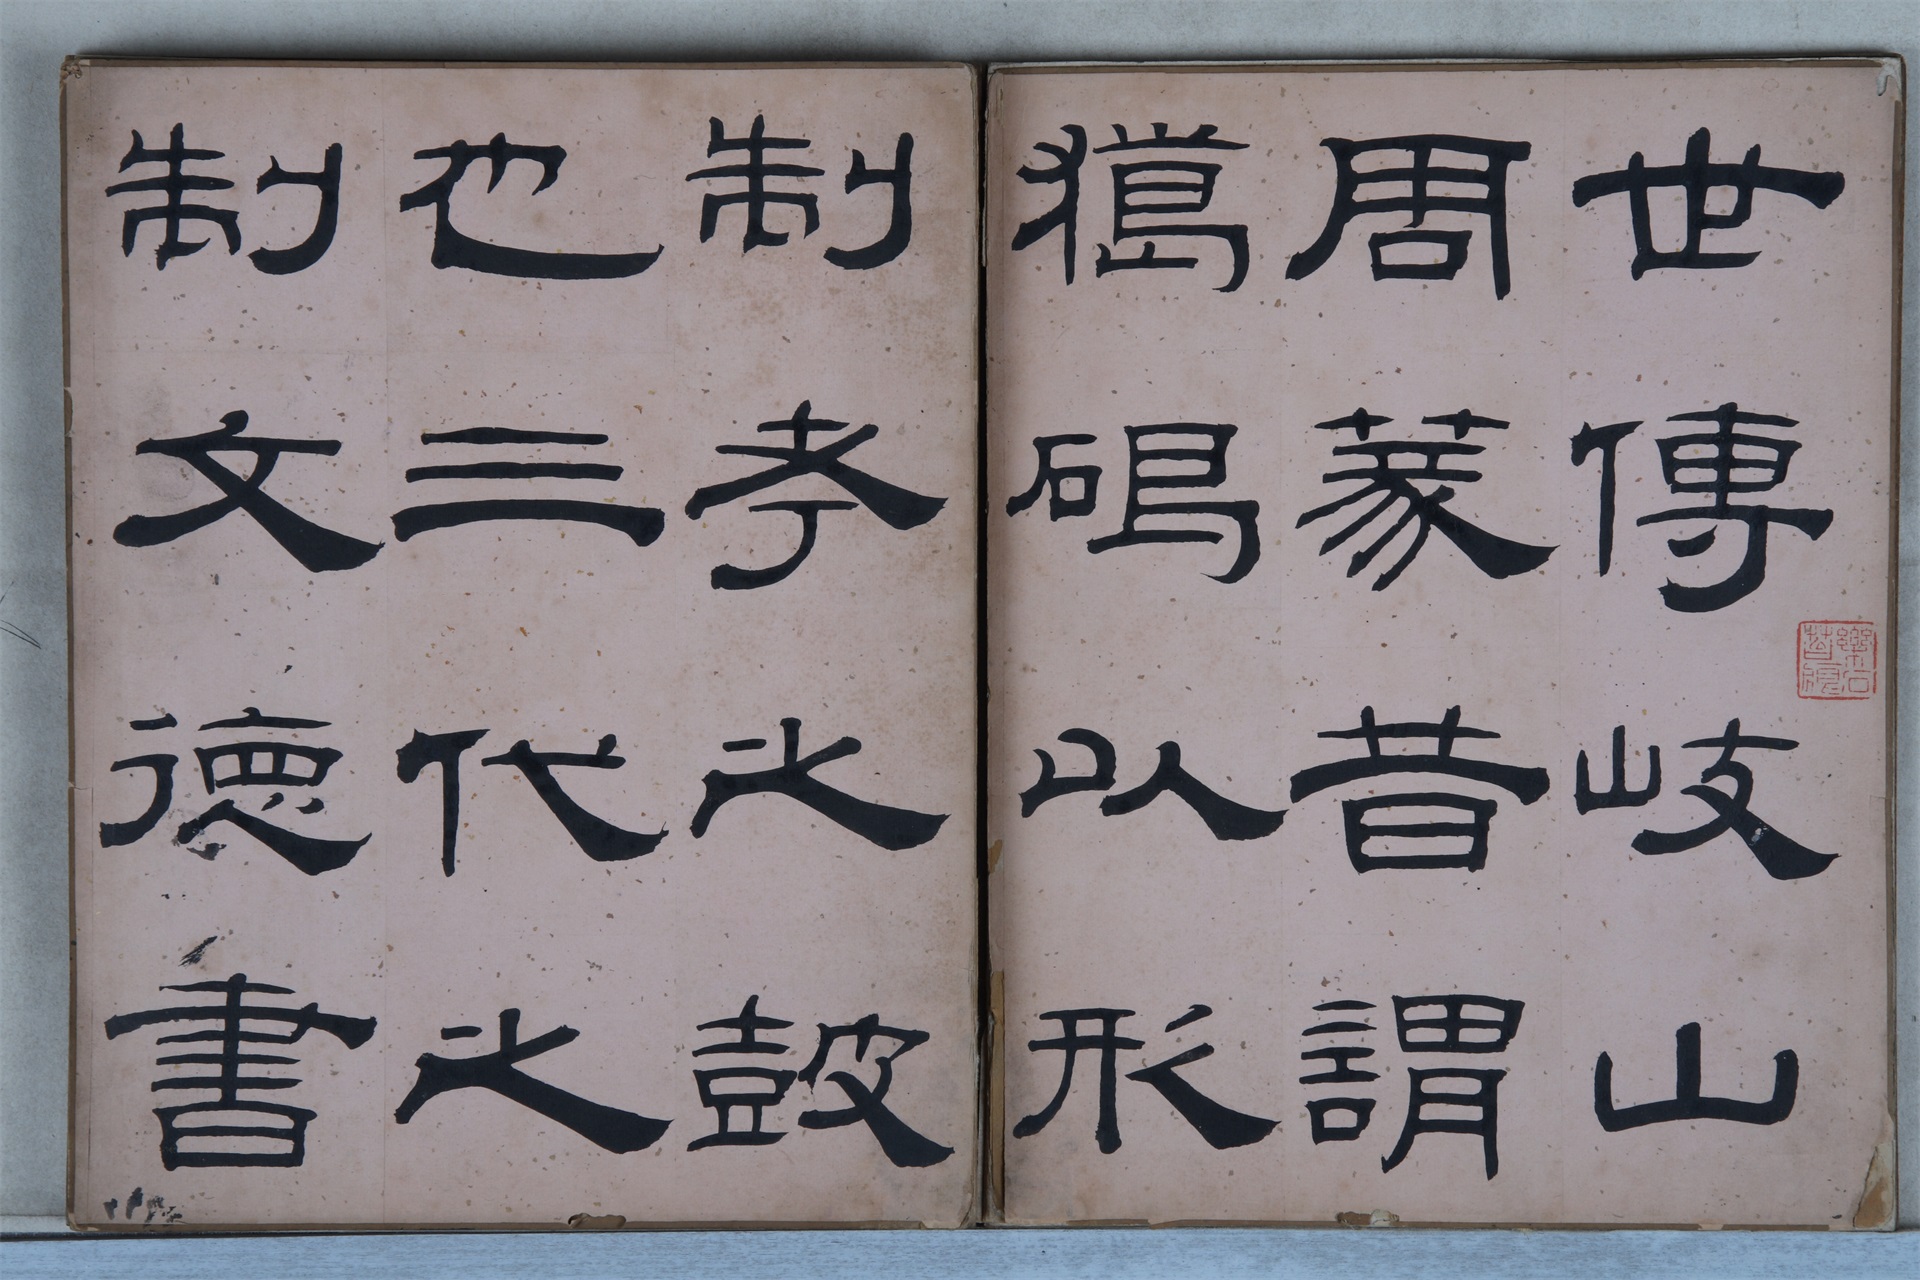 世傳岐山
周篆昔謂
獵碣以形
制考之皷
也三代之
制文德書